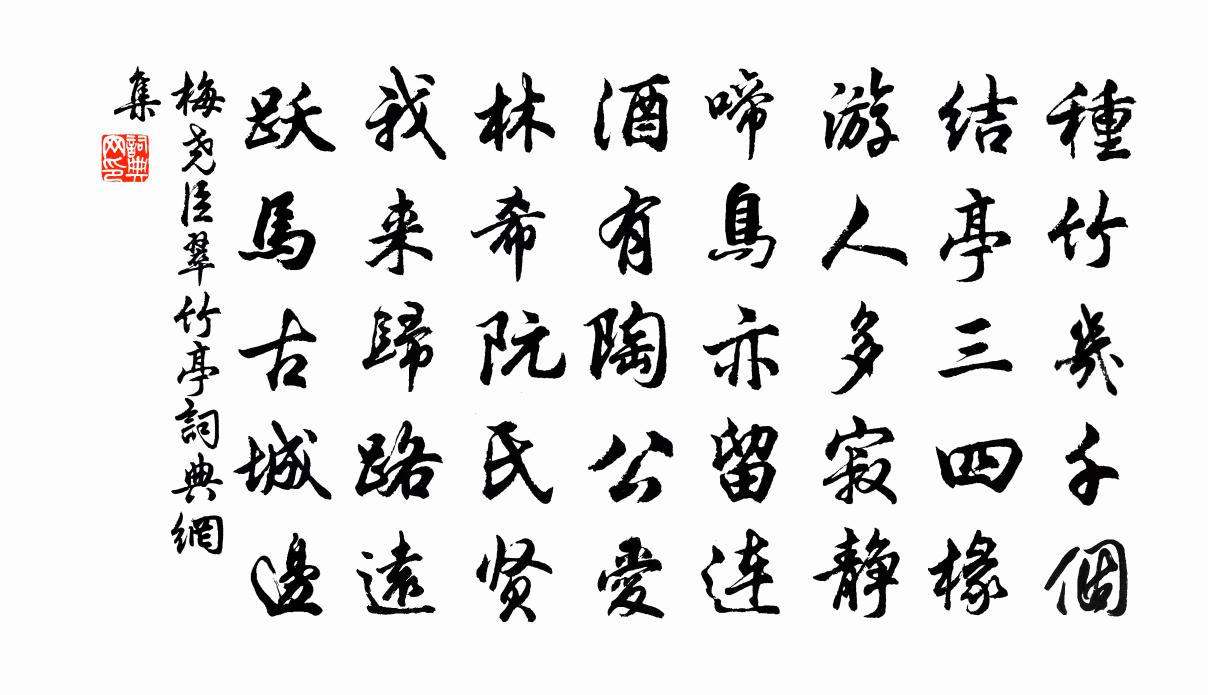 種竹幾千個
结亭三四椽
游人多寂静
啼鳥亦留連
酒有陶公愛
林希阮氏贤
我来歸路遠
跃馬古城邊
梅尧臣翠竹亭詞典網
集
詞典网印